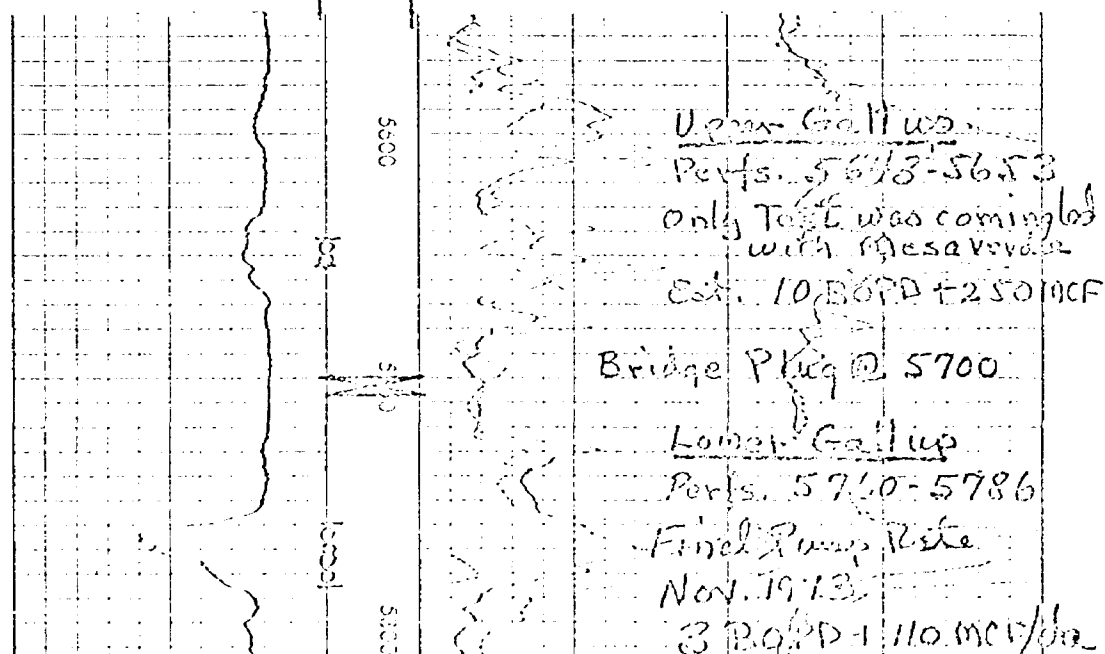 5600
Upper Gallup
Perfs. 5643-5653
Only Test was comingled
with Mesaverde
Est. 10 BOPD + 250 MCF
Bridge Plug @ 5700
Lower Gallup
Perfs. 5760-5786
Final Pump Rate
Nov. 1973
3 BOPD + 110 MCF/da